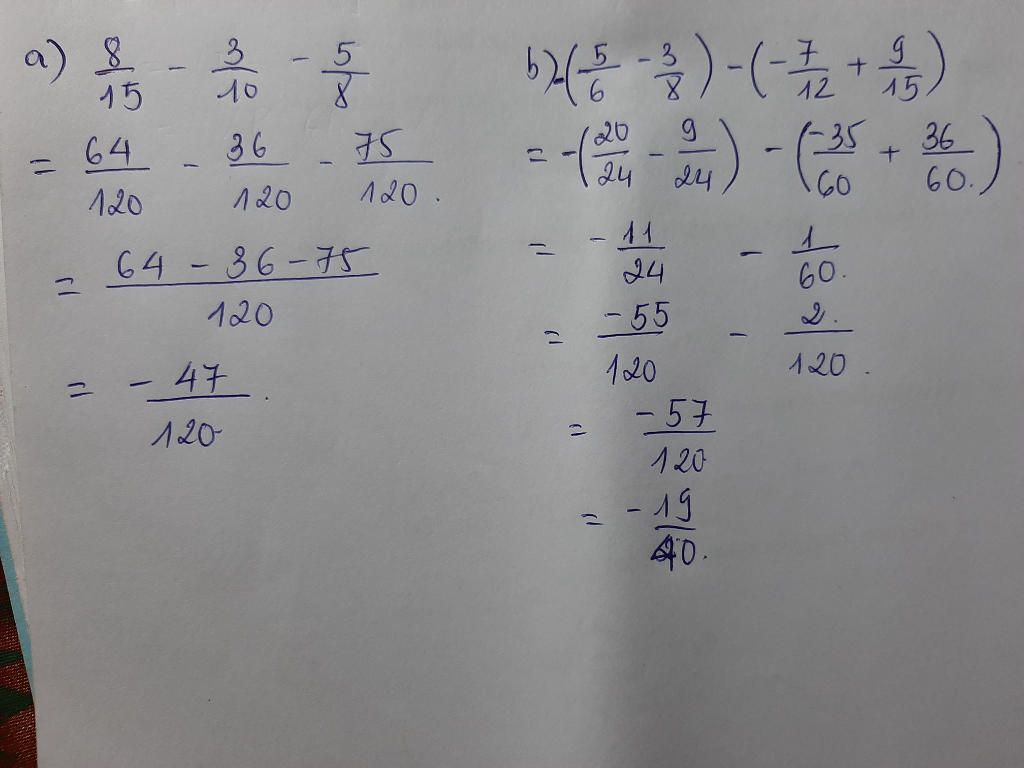 a) 8/15 - 3/10 - 5/8
= 64/120 - 36/120 - 75/120.
= (64 - 36 - 75)/120
= - 47/120.
b) -(5/6 - 3/8) - (-7/12 + 9/15)
= -(20/24 - 9/24) - (-35/60 + 36/60.)
= - 11/24 - 1/60.
= -55/120 - 2./120.
= -57/120
= - 19/40.